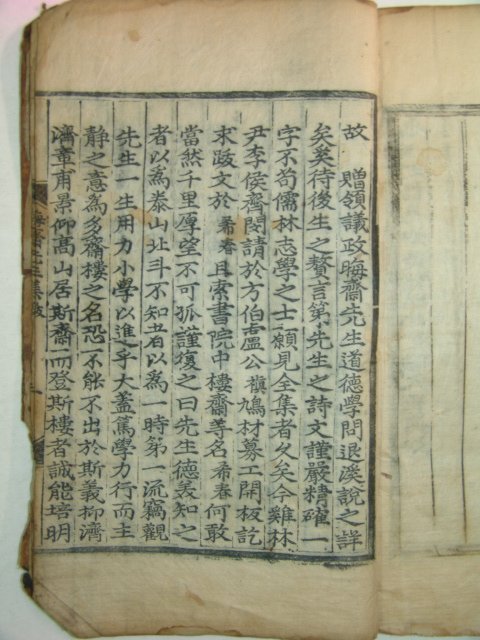 故 贈領議政晦齋先生道德學問退溪說之詳
矣奚待後生之贅言第先生之詩文謹嚴精確一
字不苟儒林志學之士願見全集者久矣今雞林
尹李侯齋閔請於方伯盧公稹鳩材募工開板訖
求跋文於希春且索書院中樓齋等名希春何敢
當然千里厚望不可孤謹復之曰先生德義知之
者以爲泰山北斗不知者以爲一時第一流竊觀
先生一生用力小學以進乎大蓋篤學力行而主
静之意爲多齋樓之名恐不能不出於斯義抑濟
濟章甫景仰高山居斯齋而登斯樓者誠能培明
晦齋先生集跋